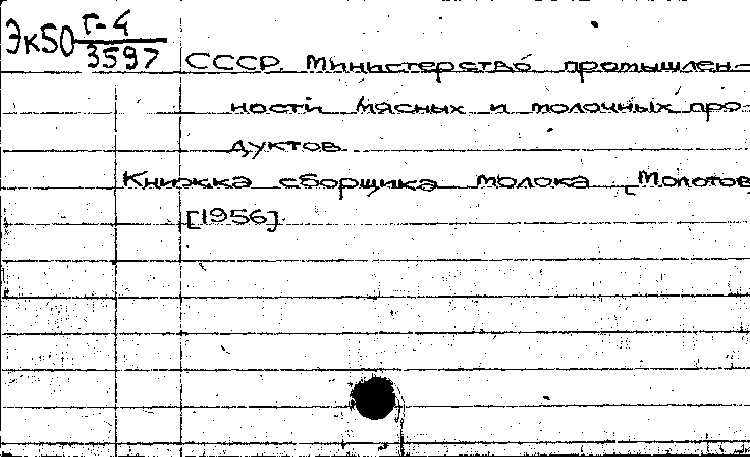 Эк50 Г-4/3597
СССР. Министерство промышлен-
ности мясных и молочных про-
дуктов.
Книжка сборщика молока [Молотов,
[1956].